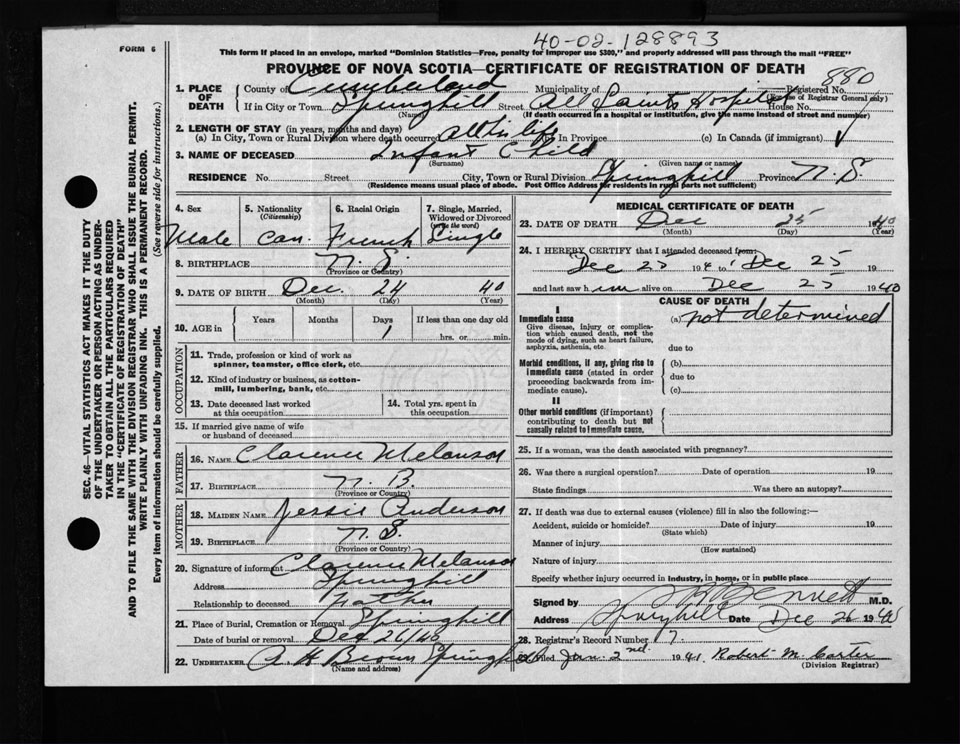 40-02-128893
FORM 6
This form if placed in an envelope, marked "Dominion Statistics—Free, penalty for improper use $300," and properly addressed will pass through the mail "FREE"
PROVINCE OF NOVA SCOTIA—CERTIFICATE OF REGISTRATION OF DEATH
880
1. PLACE OF DEATH
County of Cumberland Municipality of Registered No.
(Use of Registrar General only)
If in City or Town Springhill Street All Saints Hospital House No.
(Name) (If death occurred in a hospital or institution, give the name instead of street and number)
2. LENGTH OF STAY (in years, months and days)
(a) In City, Town or Rural Division where death occurred all his life In Province (c) In Canada (if immigrant)
3. NAME OF DECEASED Infant Child
(Surname) (Given name or names)
RESIDENCE No. Street City, Town or Rural Division Springhill Province N. S.
(Residence means usual place of abode. Post Office Address for residents in rural parts not sufficient)
4. Sex
Male
5. Nationality
(Citizenship)
Can.
6. Racial Origin
French
7. Single, Married, Widowed or Divorced
(write the word)
Single
8. BIRTHPLACE N. S.
(Province or Country)
9. DATE OF BIRTH Dec. 24 40
(Month) (Day) (Year)
10. AGE in
Years Months Days If less than one day old
1 hrs. or min.
OCCUPATION
11. Trade, profession or kind of work as
spinner, teamster, office clerk, etc.
12. Kind of industry or business, as cotton-
mill, lumbering, bank, etc.
13. Date deceased last worked
at this occupation
14. Total yrs. spent in
this occupation
15. If married give name of wife
or husband of deceased
FATHER
16. NAME Clarence Melanson
17. BIRTHPLACE N. B.
(Province or Country)
MOTHER
18. MAIDEN NAME Jessie Anderson
19. BIRTHPLACE N. S.
(Province or Country)
20. Signature of informant Clarence Melanson
Address Springhill
Relationship to deceased father
21. Place of Burial, Cremation or Removal Springhill
Date of burial or removal Dec 26/40
22. UNDERTAKER A. H. Brown Springhill
(Name and address)
MEDICAL CERTIFICATE OF DEATH
23. DATE OF DEATH Dec 25 1940
(Month) (Day) (Year)
24. I HEREBY CERTIFY that I attended deceased from:
Dec 25 194 to Dec 25 19
and last saw him alive on Dec 25 1940
CAUSE OF DEATH
I
Immediate cause
Give disease, injury or complica-
tion which caused death, not the
mode of dying, such as heart failure,
asphyxia, asthenia, etc.
(a) not determined
due to
Morbid conditions, if any, giving rise to
immediate cause (stated in order
proceeding backwards from im-
mediate cause).
(b)
due to
(c)
II
Other morbid conditions (if important)
contributing to death but not
causally related to immediate cause.
25. If a woman, was the death associated with pregnancy?
26. Was there a surgical operation? Date of operation 19
State findings Was there an autopsy?
27. If death was due to external causes (violence) fill in also the following:—
Accident, suicide or homicide? Date of injury 19
(State which)
Manner of injury
(How sustained)
Nature of injury
Specify whether injury occurred in industry, in home, or in public place
Signed by Bennett M.D.
Address Springhill Date Dec 26 1940
28. Registrar's Record Number 7
Filed Jan. 2nd 1941 Robert M. Carter
(Division Registrar)
SEC. 46—VITAL STATISTICS ACT MAKES IT THE DUTY
OF THE UNDERTAKER OR PERSON ACTING AS UNDER-
TAKER TO OBTAIN ALL THE PARTICULARS REQUIRED
IN THE "CERTIFICATE OF REGISTRATION OF DEATH"
AND TO FILE THE SAME WITH THE DIVISION REGISTRAR WHO SHALL ISSUE THE BURIAL PERMIT.
WRITE PLAINLY WITH UNFADING INK. THIS IS A PERMANENT RECORD.
Every item of information should be carefully supplied. (See reverse side for instructions.)